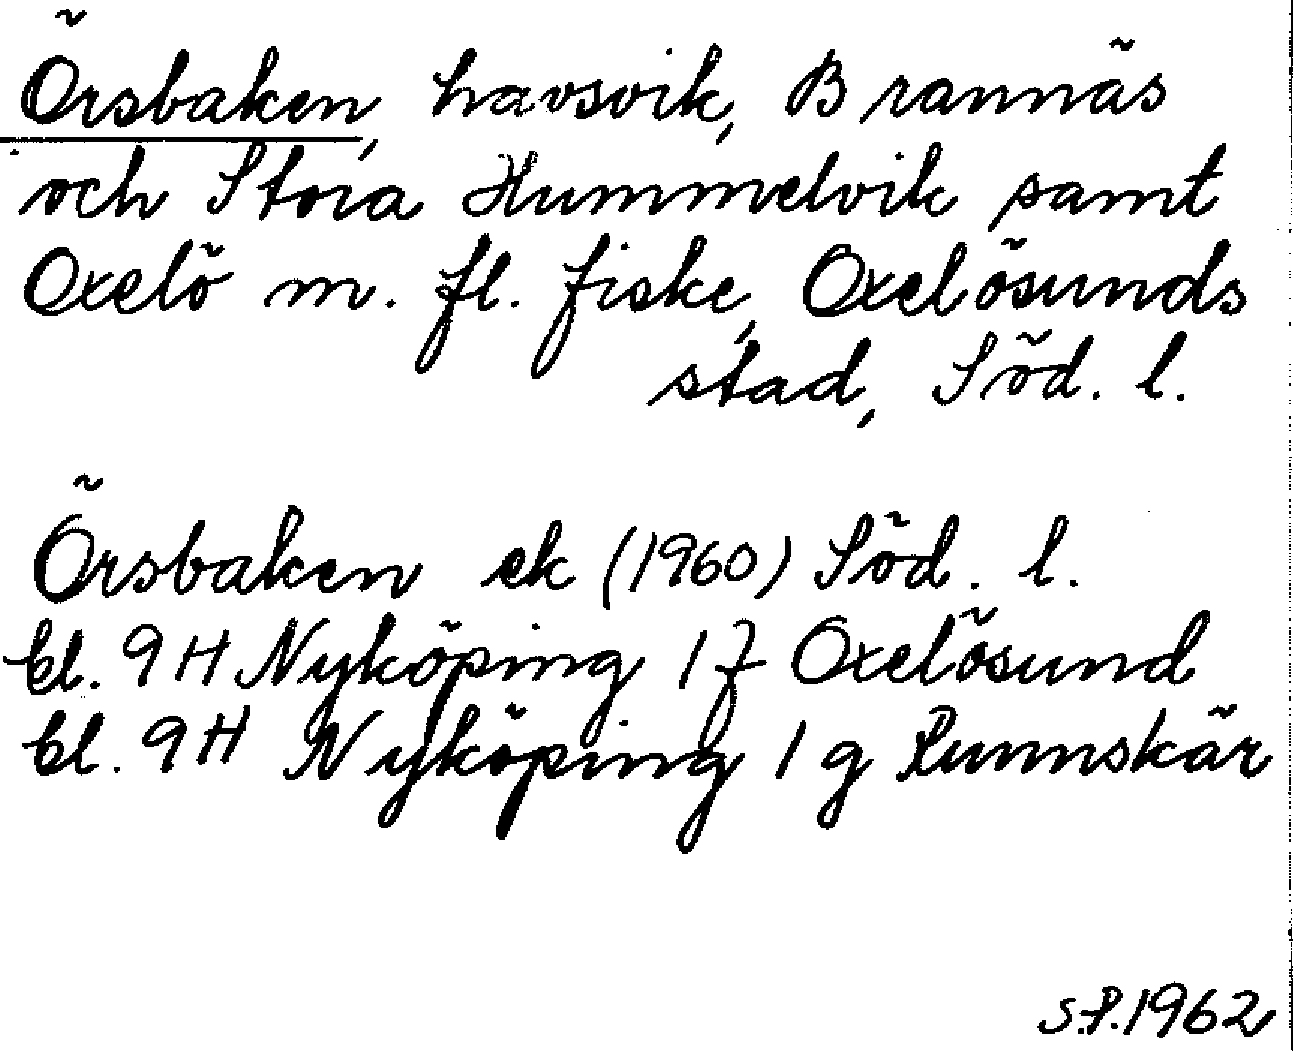 Örsbaken, havsvik, Brannäs
och Stora Hummelvik samt
Oxelö m. fl. fiske, Oxelösunds
stad, Söd. l.
Örsbaken ek (1960) Söd. l.
bl. 9H Nyköping 1f Oxelösund
bl. 9H Nyköping 1g Runnskär
S.P. 1962